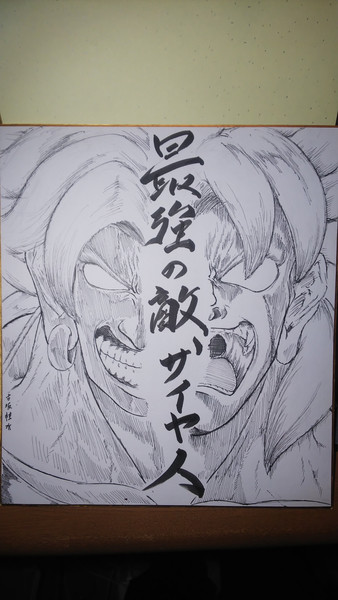 最強の敵、サイヤ人